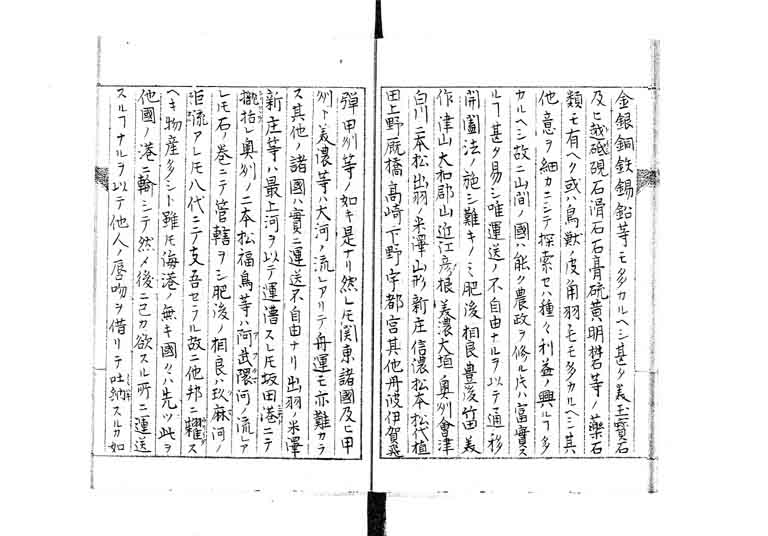 金銀銅鉄錫鉛等モ多カルヘシ甚タ美玉寳石
及ヒ越砥硯石滑石石膏硫黄明礬等ノ藥石
類モ有ヘク或ハ鳥獣ノ皮角羽毛モ多カルヘシ其
他意ヲ細カニシテ探索セハ種々利益ノ興ルヿ多
カルヘシ故ニ山間ノ國ハ能ク農政ヲ修ル圧ハ富實ス
ルヿ甚タ易シ唯運送ノ不自由ナルヲ以テ通移
開闔法ノ施シ難キノミ肥後相良豊後竹田美
作津山大和郡山近江彦根美濃大垣奥州會津
白川二本松出羽ノ米澤山形新庄信濃松本松代植
田上野厩橋高崎下野宇都宮其他丹波伊賀飛
弾甲州等ノ如キ是ナリ然レ圧関東諸國及ヒ甲
州ト美濃等ハ大河ノ流レアリテ舟運モ亦難カラ
ス其他ノ諸國ハ實ニ運送不自由ナリ出羽ノ米澤
新庄等ハ最上河ヲ以テ運漕スレ圧坂田港ニテ
奥州ノ二本松福島等ハ阿武隈河ノ流レア
レ圧石ノ巻ニテ管轄ヲシ肥後ノ相良ハ玖麻河ノ
流アレ圧八代ニテ支吾セラル故ニ他邦ニ糶ス
ヘキ物産多シト雖圧海港ノ無キ國々ハ先ツ此ヲ
他國ノ港ニ輸シテ然メ後ニ己カ欲スル所ニ運送
スルヿナルヲ以テ他人ノ唇吻ヲ借リテ吐納スルカ如